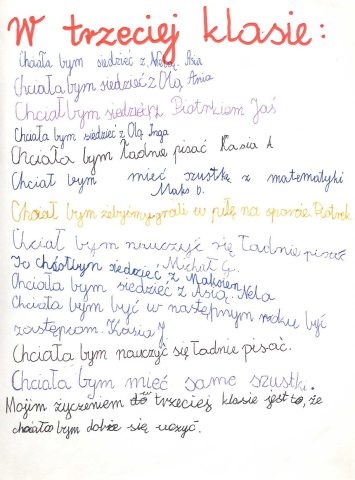 W trzeciej klasie:
Chciała bym siedzieć z Nelą. Asia
Chciała bym siedzieć z Olą Ania
Chciał bym siedzieć z Piotrkiem Jaś
Chciała bym siedzieć z Olą Inga
Chciała bym ładnie pisać Kasia
Chciał bym mieć szustkę z matematyki
Maks D.
Chciał bym żebyśmy grali w piłę na sporcie Piotrek
Chciał bym nauczyć się ładnie pisać
Ja chciołbym siedzieć z Maksem Michał G.
Chciała bym siedzieć z Asią. Nela
Chciała bym być w następnym roku być
zastępcom. Kasia J.
Chciała bym nauczyć się ładnie pisać.
Chciała bym mieć same szustki.
Mojim życzeniem trzeciej klasie jest to, że
chciała bym dobże się uczyć.